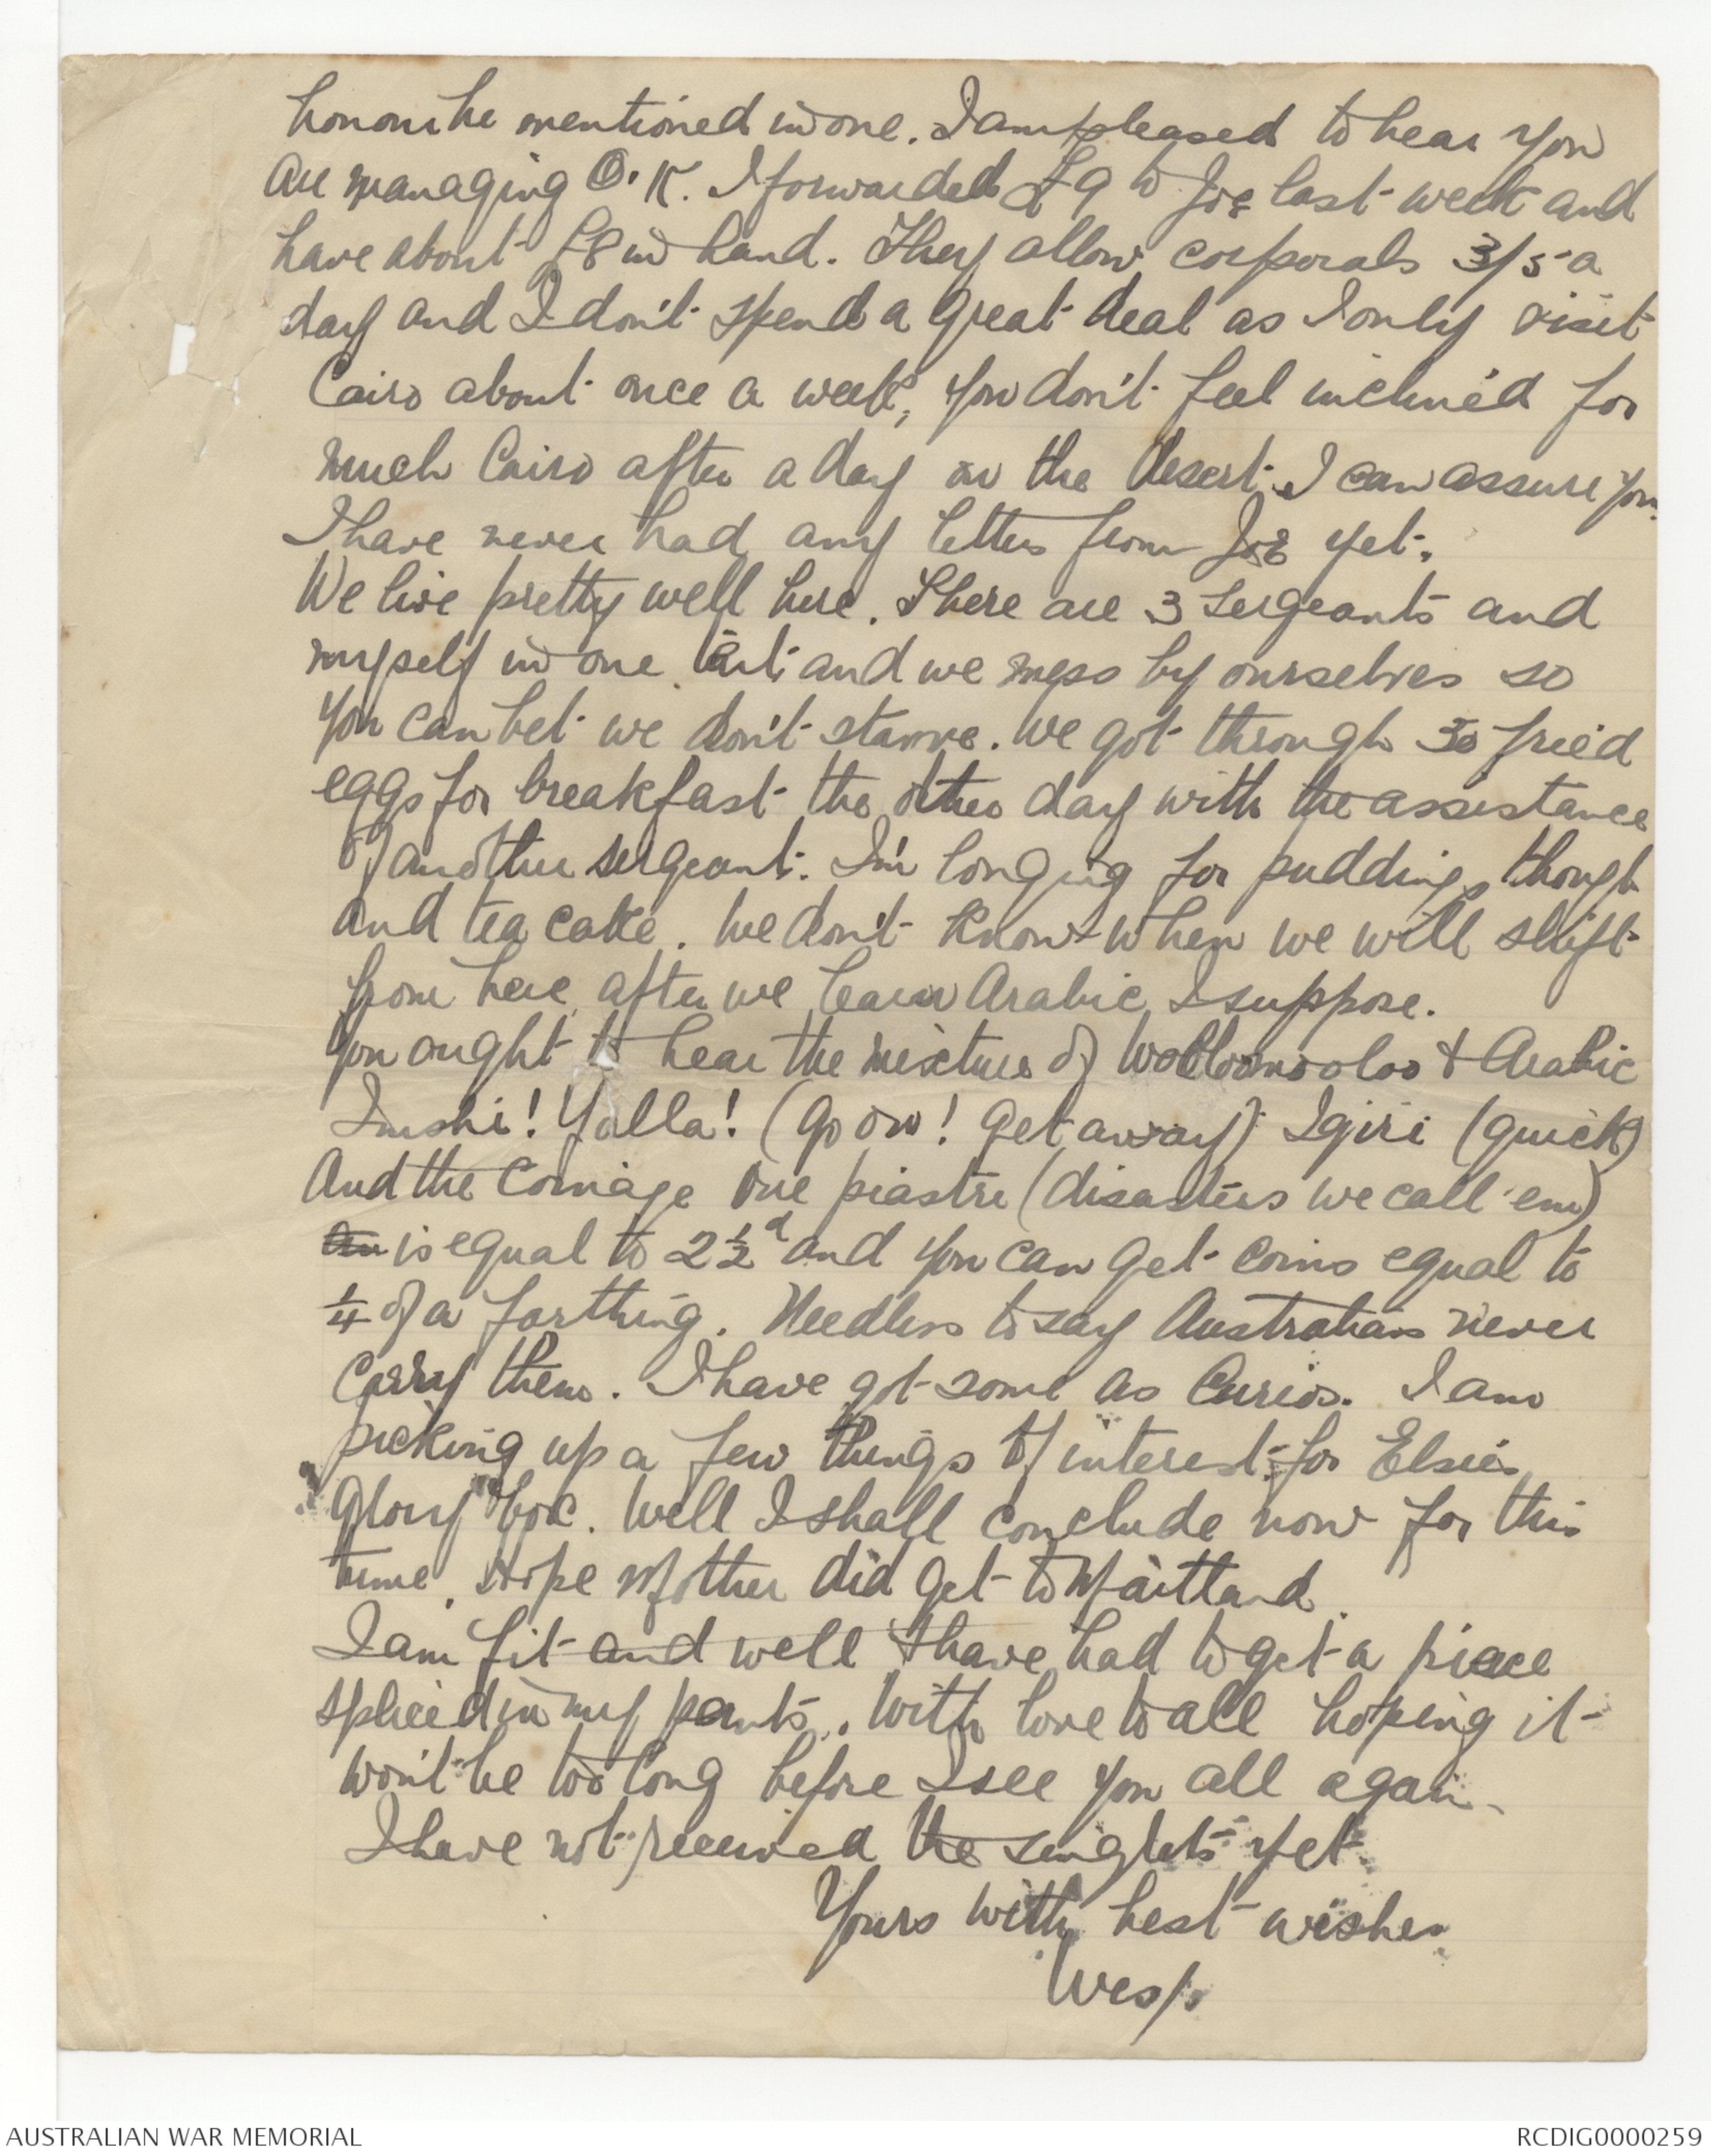 honour he mentioned in one. I am pleased to hear you
are managing O.K. I forwarded £9 to Joe last week and
have about £8 in hand. They allow corporals 3/5 a
day and I don't spend a great deal as I only visit
Cairo about once a week, you don't feel inclined for
much Cairo after a day on the desert I can assure you.
I have never had any letters from Joe yet.
We live pretty well here. There are 3 sergeants and
myself in one tent and we mess by ourselves so
you can bet we don't starve. We got through 30 fried
eggs for breakfast the other day with the assistance
of another sergeant. I'm longing for puddings though
and tea cake. We don't know when we will shift
from here, after we learn Arabic I suppose.
You ought to hear the mixture of Woolloomooloo & Arabic
Imshi! Yalla! (Go on! Get away) Igiri (quick)
And the Coinage One piastre (disasters we call 'em)
is equal to 2½d and you can get coins equal to
¼ of a farthing. Needless to say Australians never
carry them. I have got some as curios. I am
picking up a few things of interest for Elsie's
Glory Box. Well I shall conclude now for this
time, Hope Mother did get to Maitland.
I am fit and well & have had to get a piece
spliced in my pants. With love to all hoping it
won't be too long before I see you all again.
I have not received the singlets yet
Yours with best wishes
Wes/.
AUSTRALIAN WAR MEMORIAL
RCDIG0000259